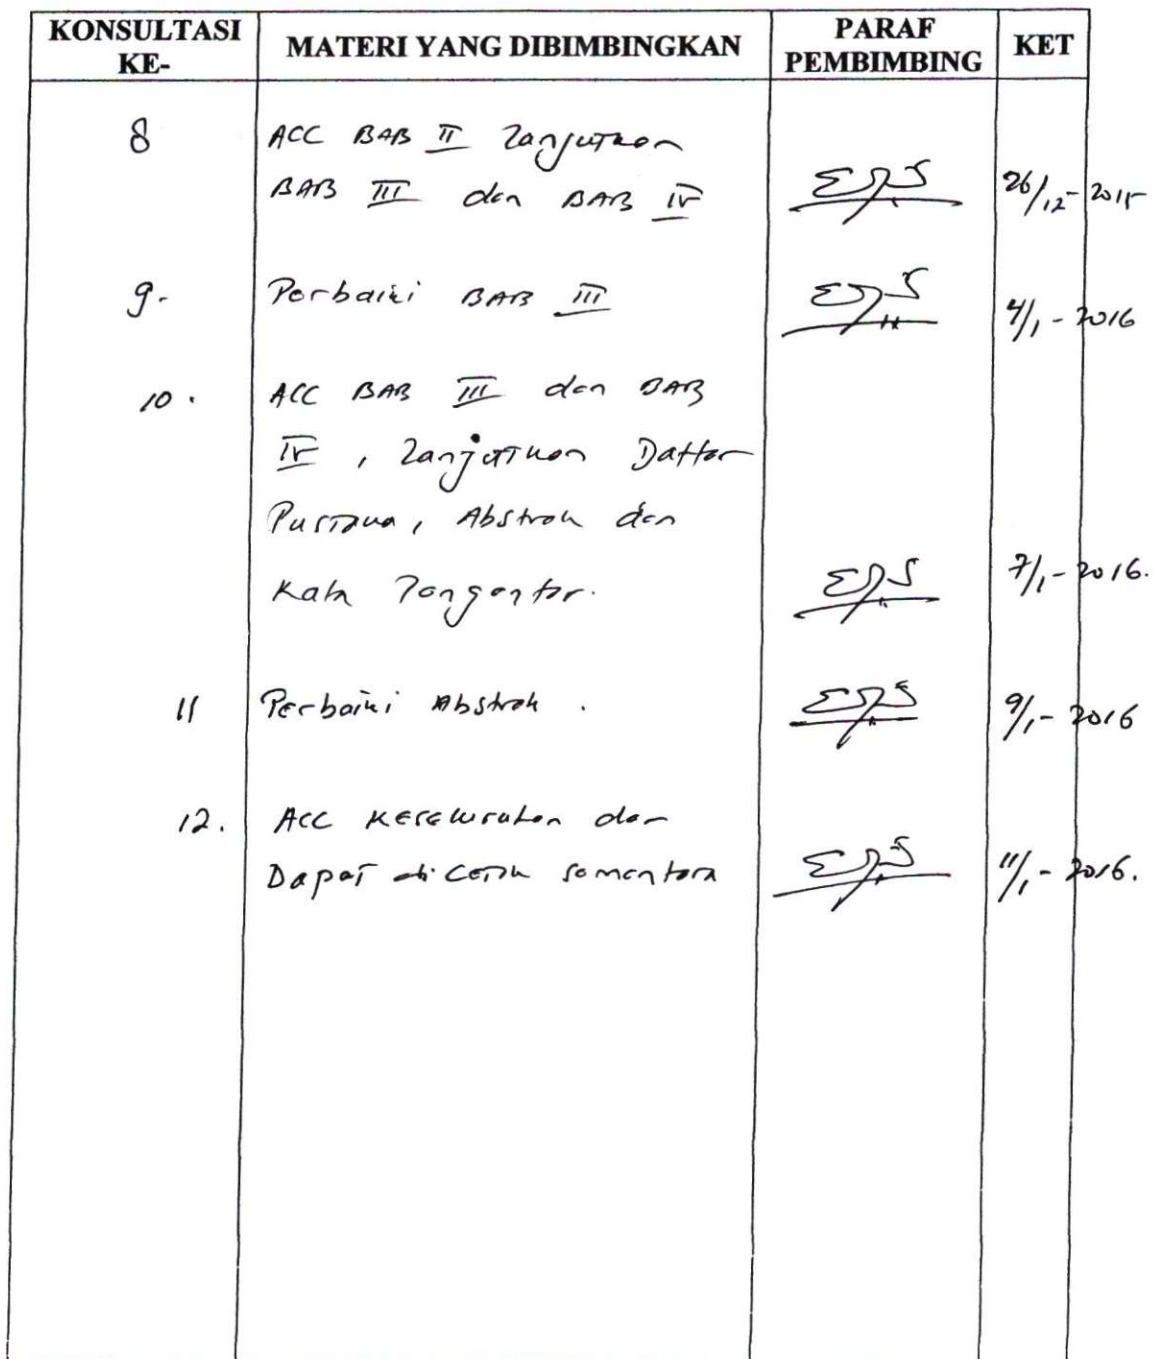 KONSULTASI KE-
MATERI YANG DIBIMBINGKAN
PARAF PEMBIMBING
KET
8
ACC BAB II Lanjutkan
BAB III dan BAB IV
26/12-2015
9.
Perbaiki BAB III
4/1-2016
10.
ACC BAB III dan BAB
IV, Lanjutkan Daftar
Pustaka, Abstrak dan
Kata Pengantar.
7/1-2016.
11
Perbaiki Abstrak.
9/1-2016
12.
ACC Keseluruhan dan
Dapat di cetak sementara
11/1-2016.